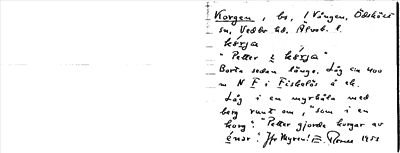 Korgen, bs, i Vången, Ödskölds
sn, Vedbo hd, Älvsb. l.
kårja
"Petter i kårja"
Borta sedan länge. Låg ca 400
m N F i Fiskelös å ek.
Låg i en myrhåla med
berg runt om, "som i en
korg". Petter gjorde korgar av
enar. Jfr Myren! 1953